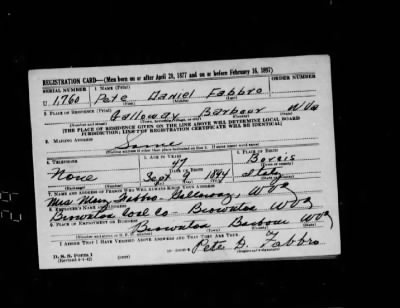 REGISTRATION CARD—(Men born on or after April 28, 1877 and on or before February 16, 1897)
SERIAL NUMBER 1. NAME (Print) ORDER NUMBER
U. 1760 Pete Daniel Fabbro
(First) (Middle) (Last)
2. PLACE OF RESIDENCE (Print)
Galloway Barbour W Va
(Number and street) (Town, township, village, or city) (County) (State)
[THE PLACE OF RESIDENCE GIVEN ON THE LINE ABOVE WILL DETERMINE LOCAL BOARD
JURISDICTION; LINE 2 OF REGISTRATION CERTIFICATE WILL BE IDENTICAL]
3. MAILING ADDRESS
Same
[Mailing address if other than place indicated on line 2. If same insert word same]
4. TELEPHONE 5. AGE IN YEARS 6. PLACE OF BIRTH
47
DATE OF BIRTH
None Sept 1894 Italy
7. NAME AND ADDRESS OF PERSON WHO WILL ALWAYS KNOW YOUR ADDRESS
Mrs Mary Fabbro Galloway W Va
8. EMPLOYER'S NAME AND ADDRESS
Brownton Coal Co Brownton W Va
9. PLACE OF EMPLOYMENT OR BUSINESS
Brownton Barbour W Va
(Number and street or R. F. D. number) (Town) (County) (State)
I AFFIRM THAT I HAVE VERIFIED ABOVE ANSWERS AND THAT THEY ARE TRUE.
Pete D. Fabbro
D. S. S. Form 1
(Revised 4-1-42) (over)